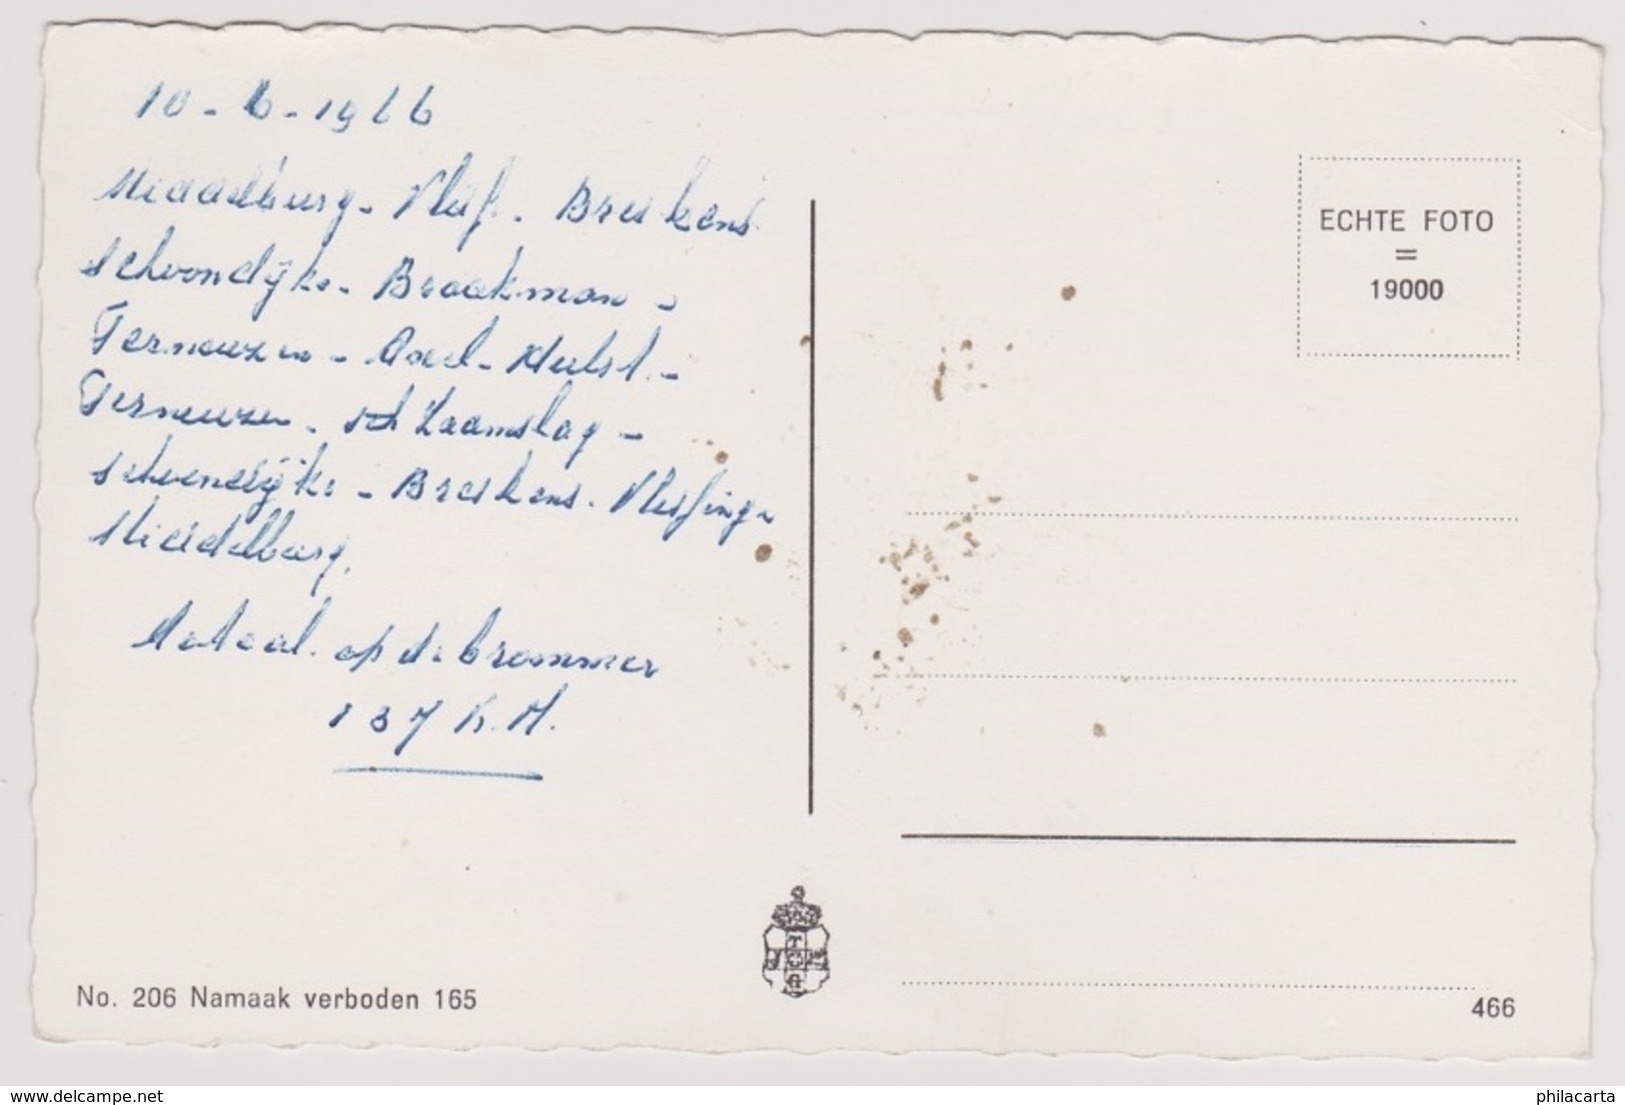 10-6-1966
Middelburg - Vliss. Breskens
Schoondijke - Braakman -
Terneuzen - Axel - Hulst. -
Terneuzen - sch Zaamslag -
Schoondijke - Breskens. Vlissing -
Middelburg.
Totaal op de brommer
137 K.M.
ECHTE FOTO
=
19000
No. 206 Namaak verboden 165
466
delcampe.net
philacarta